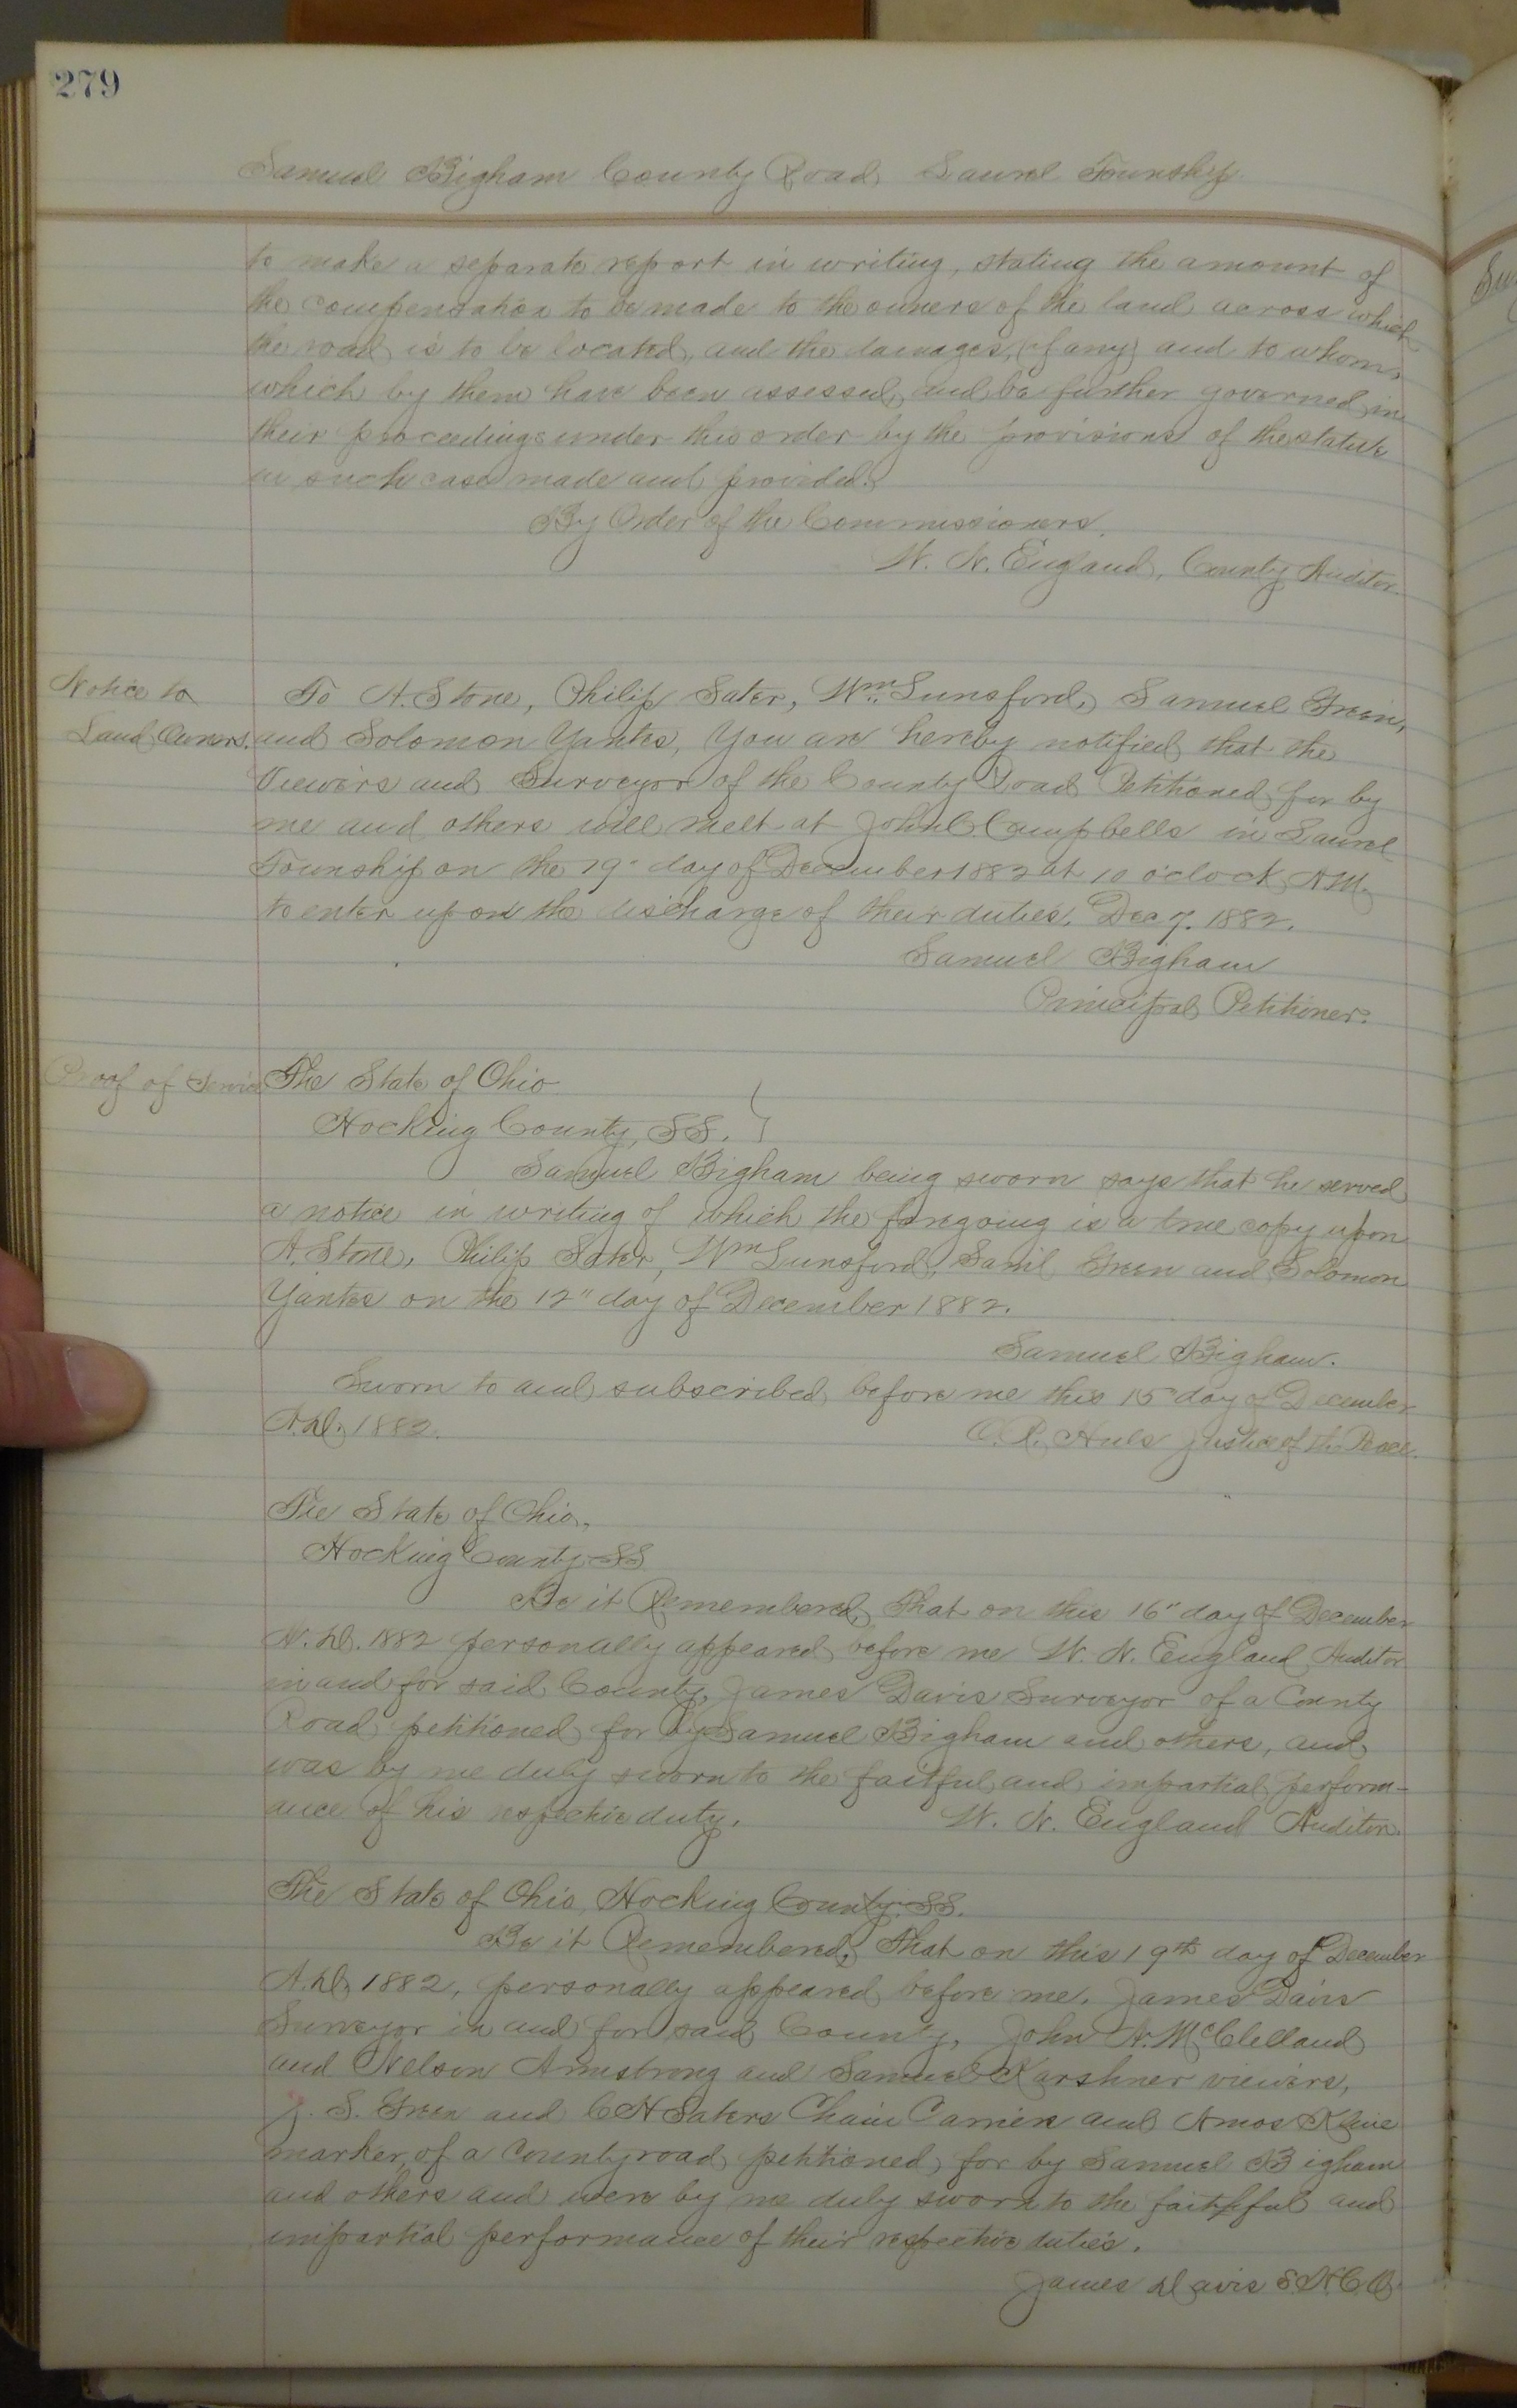 279
Samuel Bigham County Road Laurel Township
to make a separate report in writing, stating the amount of
the compensation to be made to the owners of the land across which
the road is to be located, and the damages, (if any) and to whom,
which by them have been assessed, and be further governed in
their proceedings under this order by the provisions of the statute
in such case made and provided.
By Order of the Commissioners.
W. N. England, County Auditor.
Notice to
Land Owners.
To A. Stone, Philip Sater, Wm Lunsford, Samuel Green,
and Solomon Yantes, You are hereby notified that the
Viewers and Surveyor of the County Road Petitioned for by
me and others will meet at John C. Campbells in Laurel
Township on the 19" day of December 1882 at 10 o'clock A.M.
to enter upon the discharge of their duties. Dec 7. 1882.
Samuel Bigham
Principal Petitioner.
Proof of Service
The State of Ohio
Hocking County, SS. }
Samuel Bigham being sworn says that he served
a notice in writing of which the foregoing is a true copy upon
A. Stone, Philip Sater, Wm Lunsford, Saml Green and Solomon
Yantes on the 12" day of December 1882.
Samuel Bigham.
Sworn to and subscribed before me this 15 day of December
A.D. 1882.
Justice of the Peace.
The State of Ohio,
Hocking County SS
Be it Remembered, That on this 16" day of December
A.D. 1882 personally appeared before me W. N. England Auditor
in and for said County, James Davis Surveyor of a County
Road petitioned for by Samuel Bigham and others, and
was by me duly sworn to the faitful and impartial perform-
ance of his respective duty.
W. N. England Auditor.
The State of Ohio, Hocking County. SS.
Be it Remembered, that on this 19th day of December
A.D. 1882, personally appeared before me, James Davis
Surveyor in and for said County, John A. McClelland
and Nelson Armstrong and Samuel Karshner viewers,
J. S. Green and C H Saters Chain Carriers and Amos
marker, of a County road petitioned for by Samuel Bigham
and others and were by me duly sworn to the faithful and
impartial performance of their respective duties.
James Davis S.H.C.O.